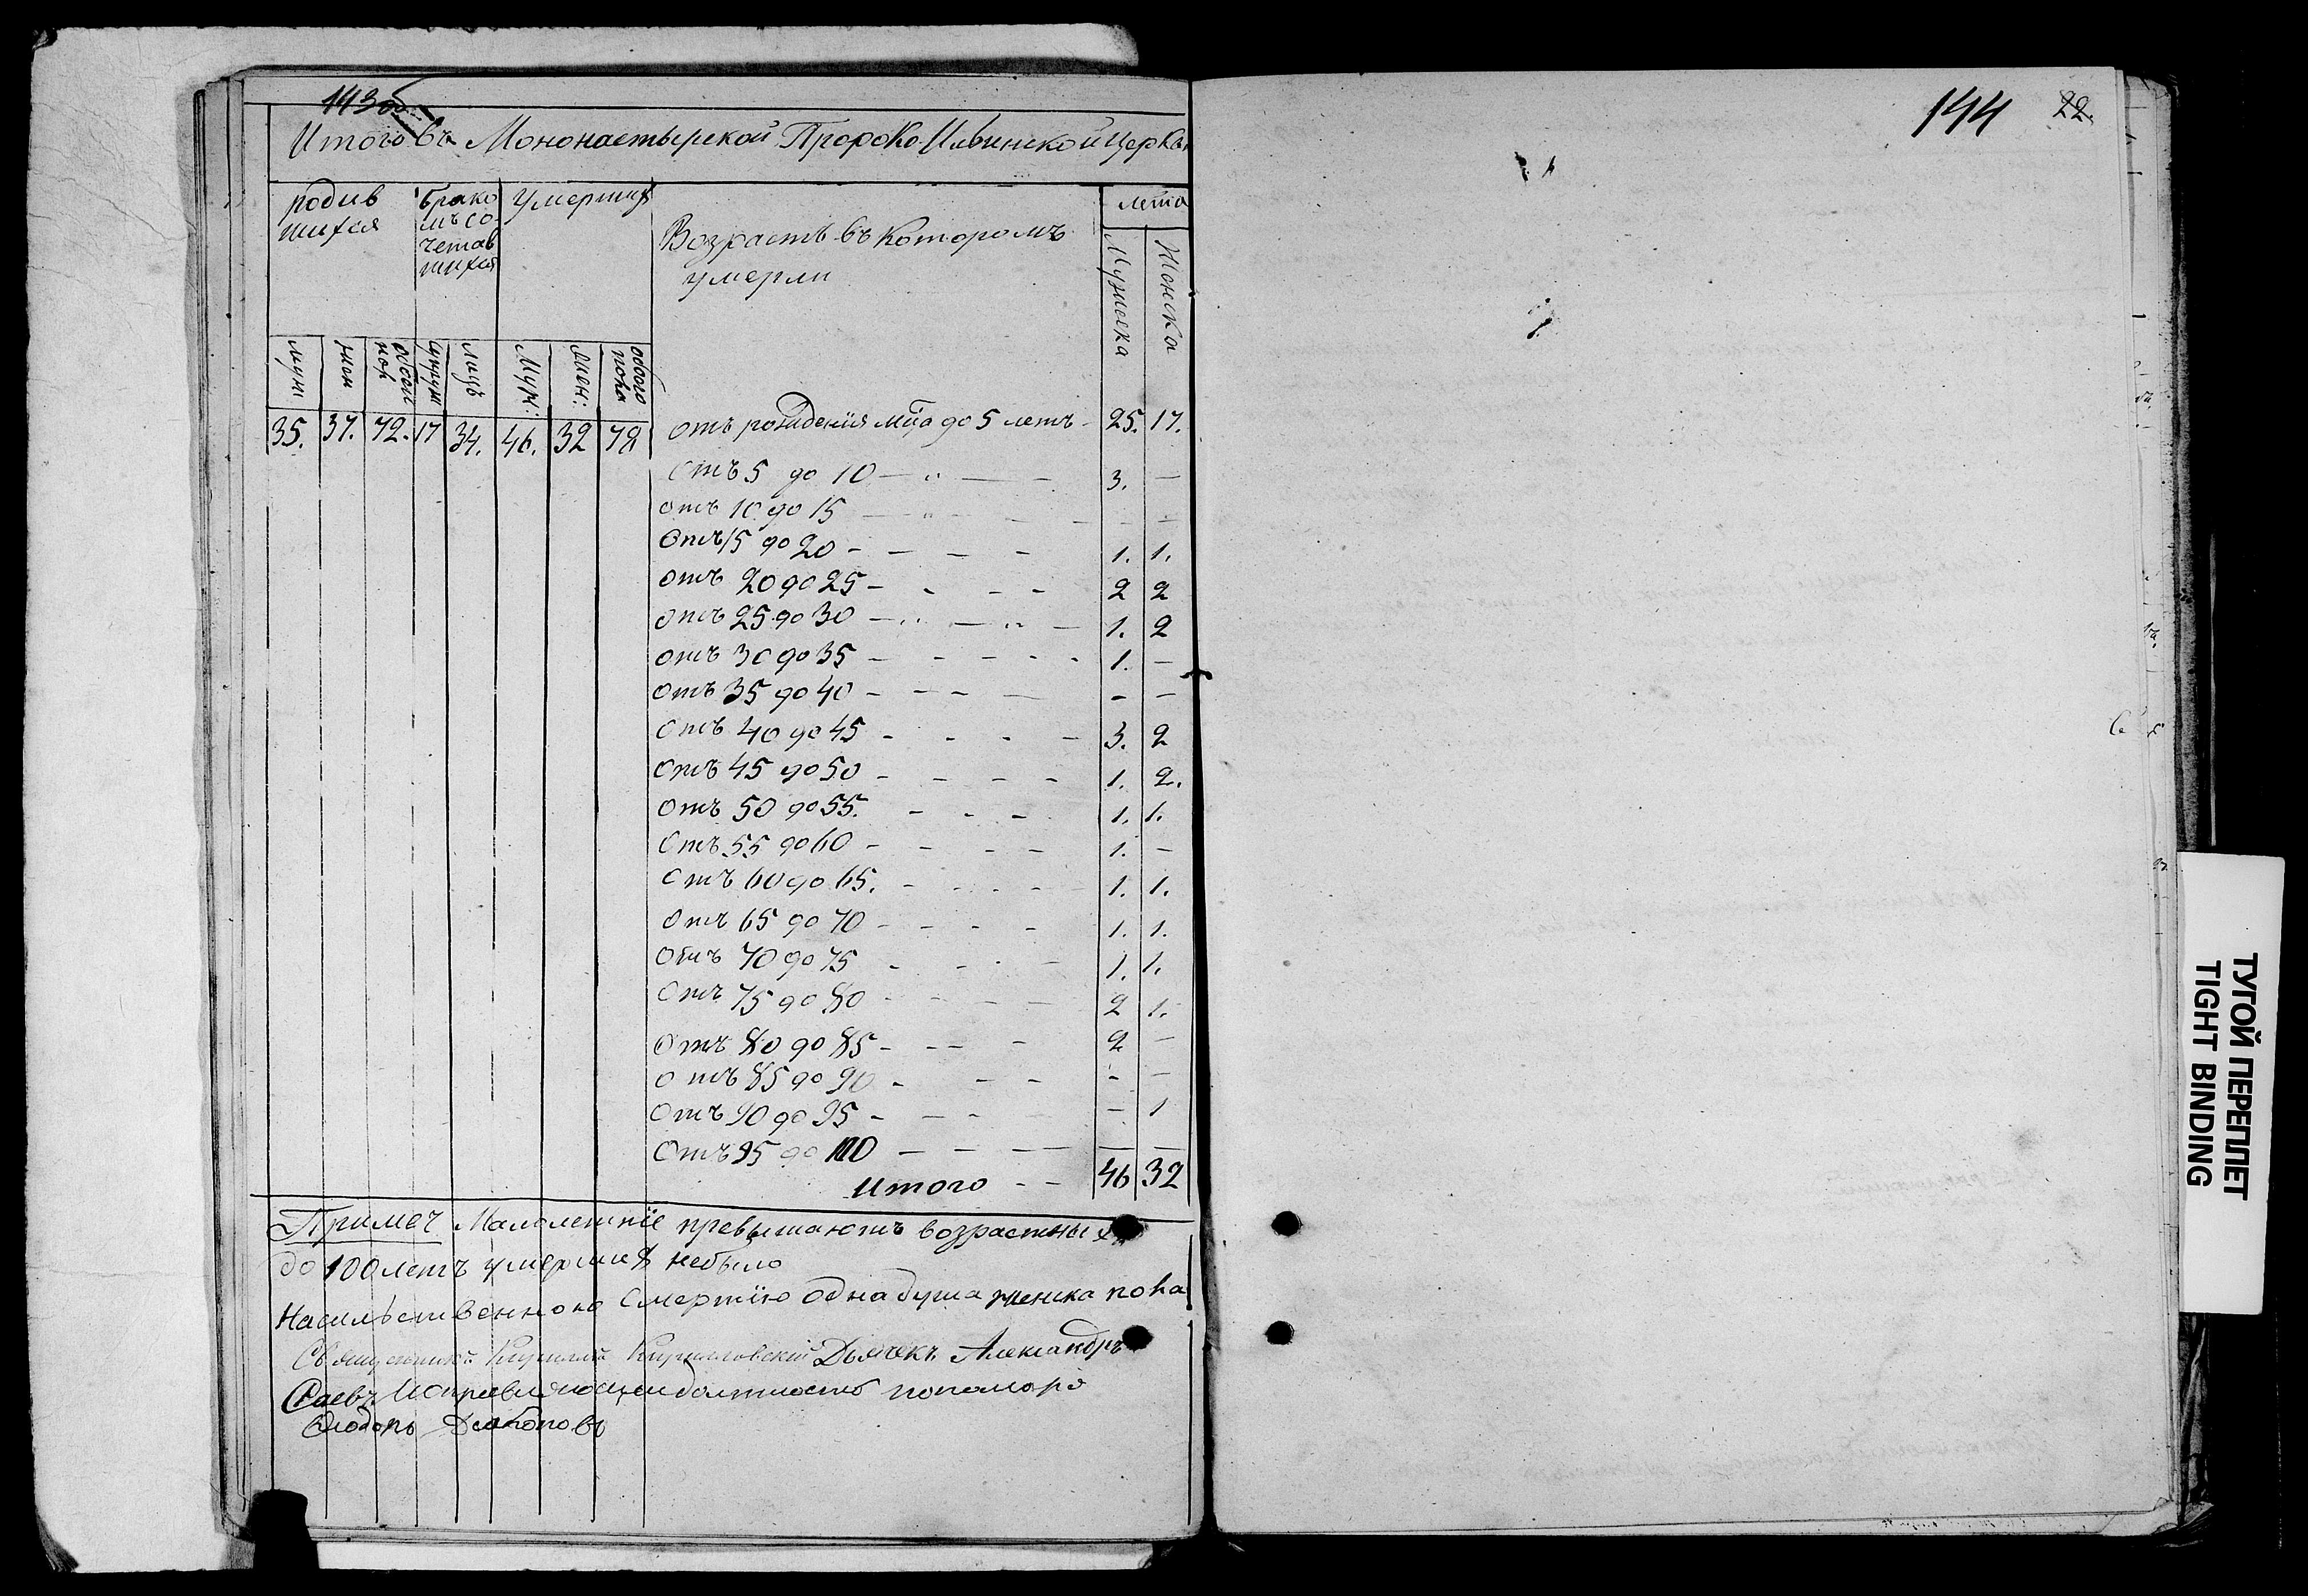 143об
Итого въ Мононастырской Пророко Ильинской Церкви
родив
шихся
брако
мъ со
четав
шихся
Умерших
Возрасть въ которомъ
умерли
лета
Мужеска
Женска
муж
жен
обоего
пол
супруж
лицъ
Муж:
Жен:
обоего
пола
35. 37. 72. 17 34. 46. 32 78
отъ рождения мца до 5 летъ - 25. 17.
отъ 5 до 10 — " — - 3. —
отъ 10 до 15 — " - - - - -
отъ 15 до 20 - - - - 1. 1.
отъ 20 до 25 - - - - 2 2
отъ 25 до 30 - " - " - 1. 2
отъ 30 до 35 - - - - - 1. —
отъ 35 до 40 - - - — - —
отъ 40 до 45 - - - - 3. 2
отъ 45 до 50 - - - - 1. 2.
отъ 50 до 55. - - - 1. 1.
отъ 55 до 60 - - - - 1. —
отъ 60 до 65. - - - - 1. 1.
отъ 65 до 70 - - - - 1. 1.
отъ 70 до 75 - - - - 1. 1.
отъ 75 до 80 - - - - 2 1.
отъ 80 до 85 - - - - 2 —
отъ 85 до 90 - - - - —
отъ 90 до 95 - - - — 1
отъ 95 до 100 — — — — —
Итого - - 46 32
Примеч Малолетнїе превышаютъ возрастных
до 100 летъ умерших небыло
Насильственною Смертїю одна душа женска пола
Священникъ Кириллъ Кирилловский Дьячекъ Александръ
Исправляющей должность пономаря
Дьяконовъ
144 22.
ТУГОЙ ПЕРЕПЛЕТ
TIGHT BINDING